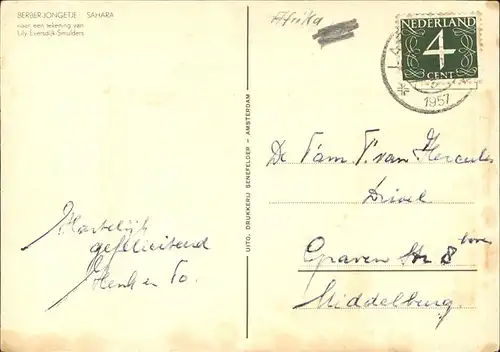 BERBERJONGETJE SAHARA
naar een tekening van
Lily Eversdijk-Smulders
Afrika
NEDERLAND
4
CENT
1957
UITG. DRUKKERIJ BENEFELDER - AMSTERDAM
De Fam. van Hercules
Graven Str 8 boven
Middelburg.
Hartelijk
gefeliciteerd
Henk en To.